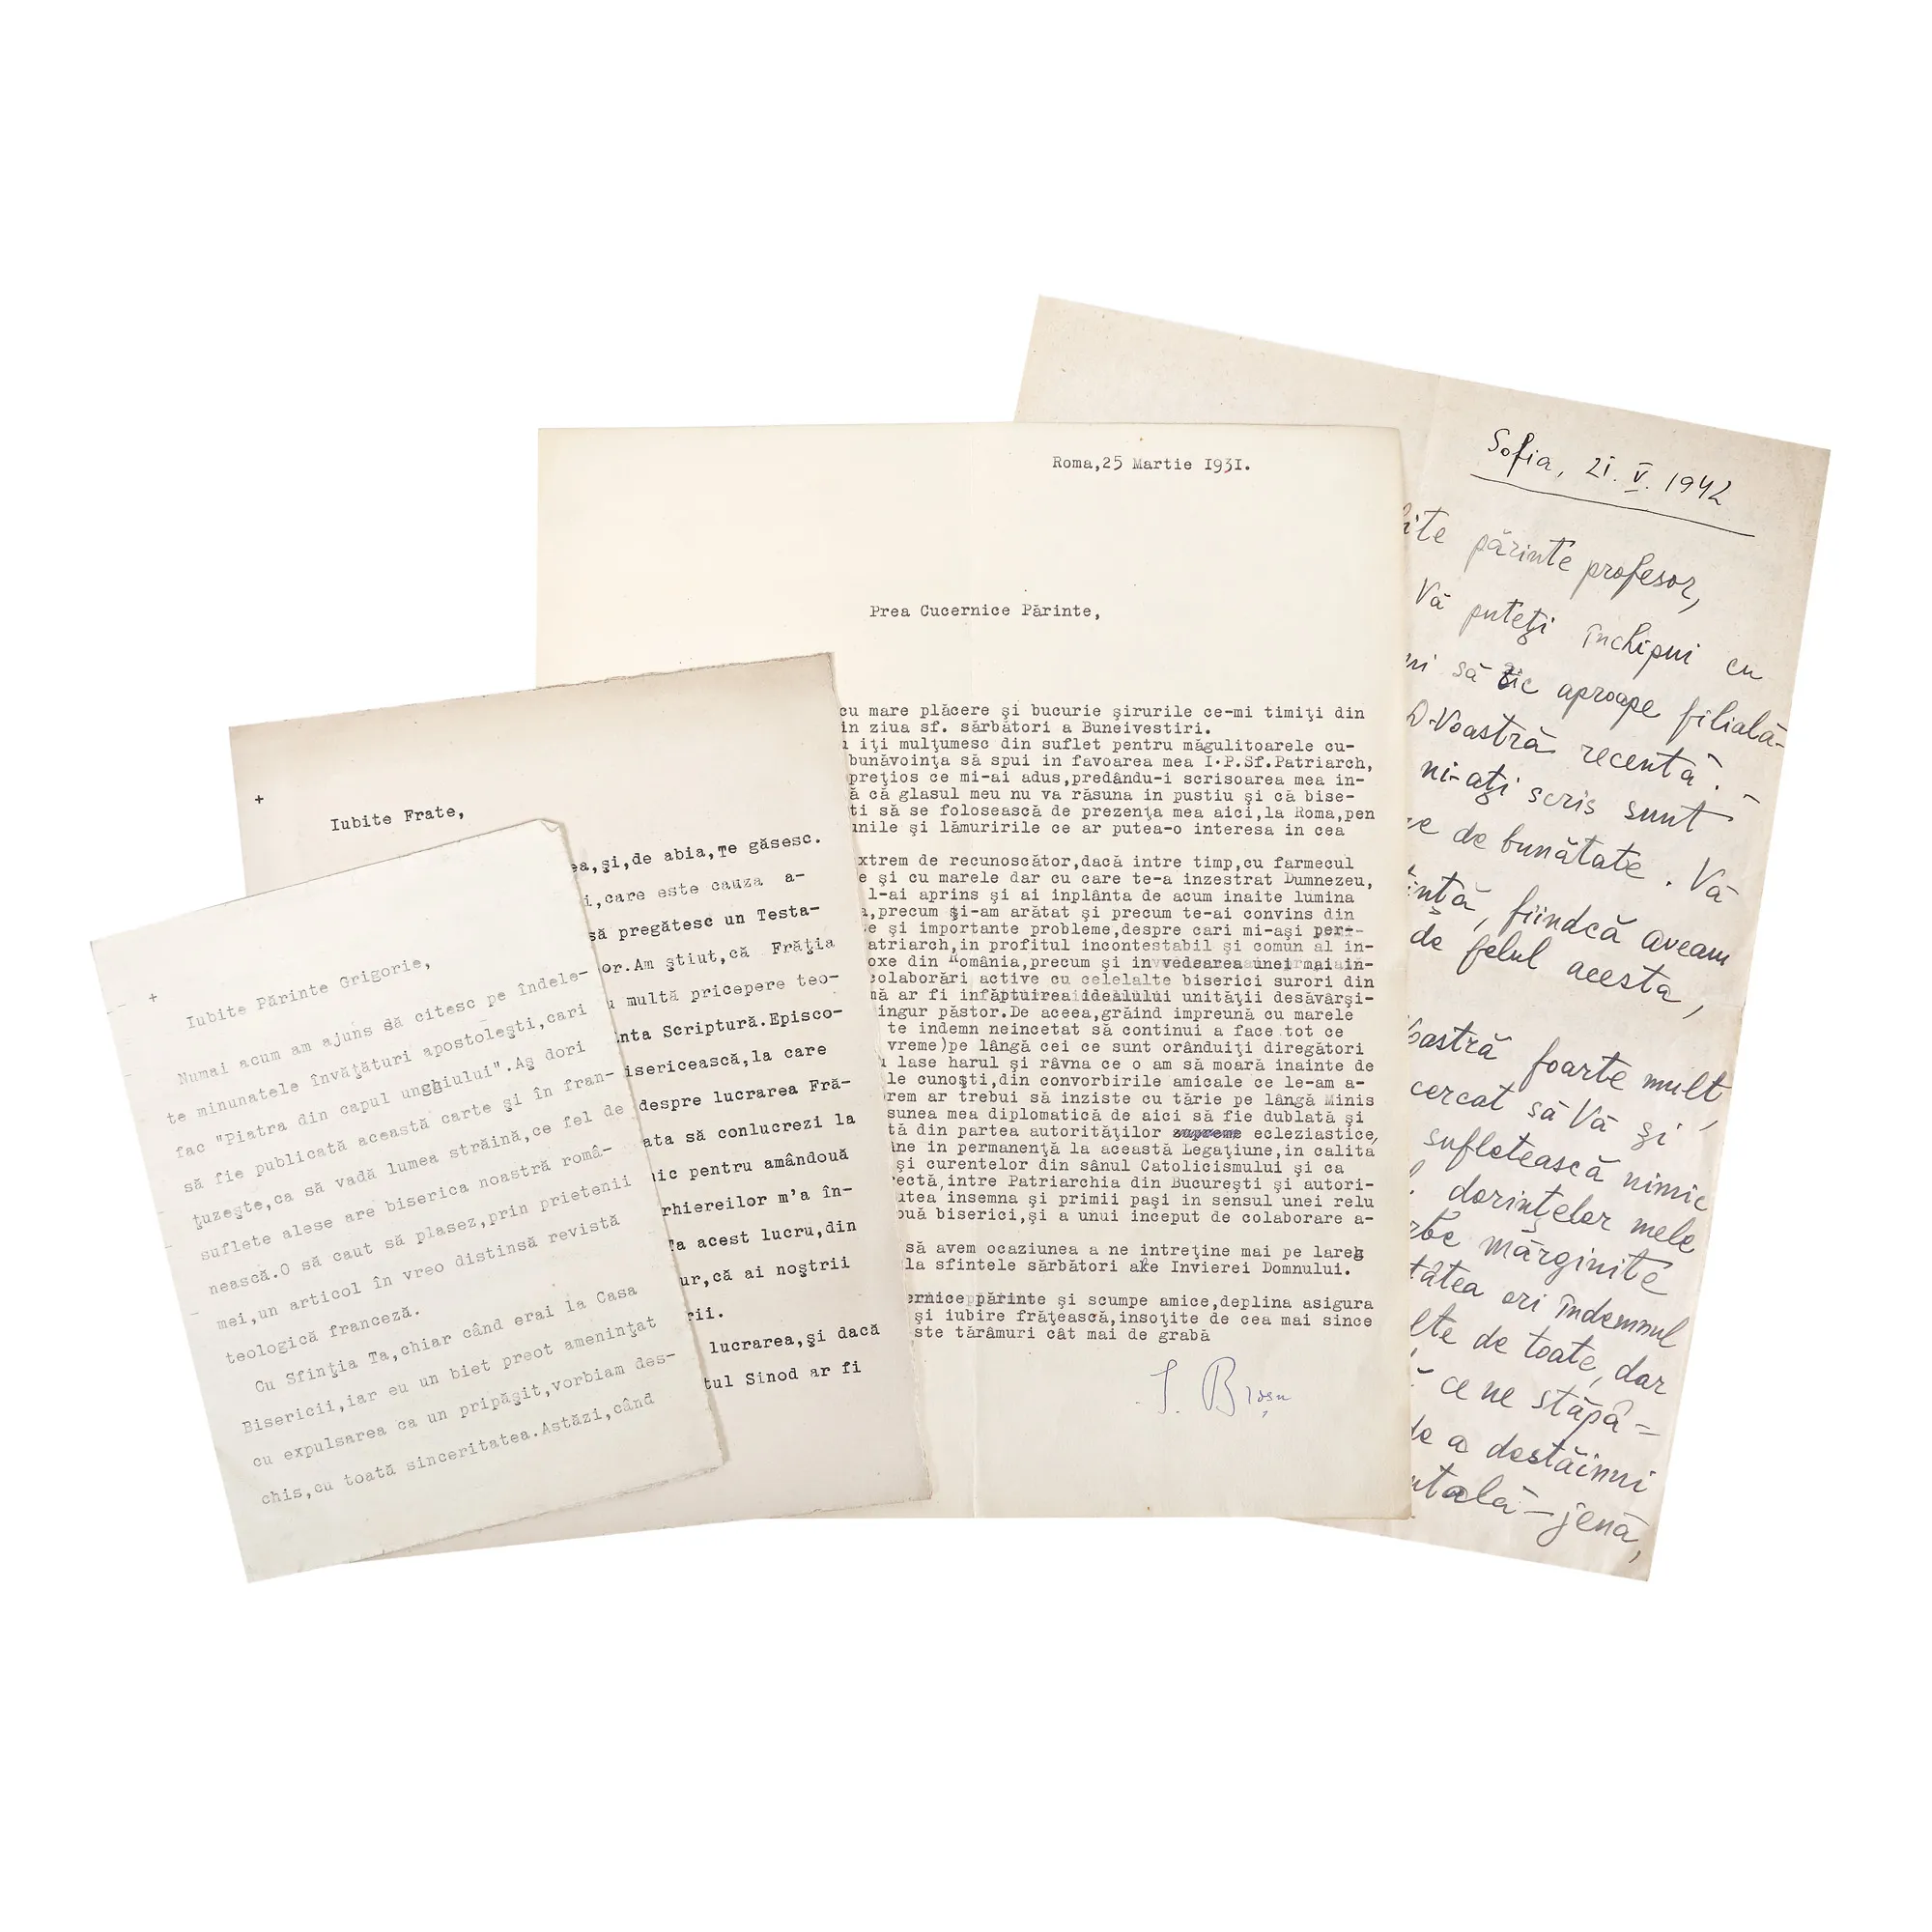 +
Iubite Părinte Grigorie,
Numai acum am ajuns să citesc pe îndele-
te minunatele învăţături apostoleşti,cari
fac "Piatra din capul unghiului".Aş dori
să fie publicată această carte şi în fran-
ţuzeşte,ca să vadă lumea străină,ce fel de
suflete alese are biserica noastră româ-
nească.O să caut să plasez,prin prietenii
mei,un articol în vreo distinsă revistă
teologică franceză.
Cu Sfinţia Ta,chiar când erai la Casa
Bisericii,iar eu un biet preot ameninţat
cu expulsarea ca un pripăşit,vorbiam des-
chis,cu toată sinceritatea.Astăzi,când
+
Iubite Frate,
ea,şi,de abia,Te găsesc.
i,care este cauza a-
să pregătesc un Testa-
or.Am ştiut,că Frăţia
u multă pricepere teo-
nta Scriptură.Episco-
isericească,la care
despre lucrarea Fră-
ata să conlucrezi la
nic pentru amândouă
rhiereilor m'a în-
Ta acest lucru,din
ur,că ai noştrii
rii.
lucrarea,şi dacă
tul Sinod ar fi
Roma,25 Martie 1931.
Prea Cucernice Părinte,
cu mare plăcere şi bucurie şirurile ce-mi timiţi din
in ziua sf. sărbători a Buneivestiri.
iţi mulţumesc din suflet pentru măgulitoarele cu-
bunăvoinţa să spui in favoarea mea I.P.Sf.Patriarch,
preţios ce mi-ai adus,predându-i scrisoarea mea in-
ă că glasul meu nu va răsuna in pustiu şi că bise-
ti să se folosească de prezenţa mea aici,la Roma,pen
unile şi lămuririle ce ar putea-o interesa in cea
xtrem de recunoscător,dacă intre timp,cu farmecul
e şi cu marele dar cu care te-a inzestrat Dumnezeu,
l-ai aprins şi ai inplânta de acum inaite lumina
a,precum ţi-am arătat şi precum te-ai convins din
e şi importante probleme,despre cari mi-aşi per-
atriarch,in profitul incontestabil şi comun al in-
oxe din România,precum şi in vedearea unei mai in-
colaborări active cu celelalte biserici surori din
nă ar fi infăptuirea idealului unităţii desăvârşi-
ingur păstor.De aceea,grăind impreună cu marele
te indemn neincetat să continui a face tot ce
vreme)pe lângă cei ce sunt orânduiţi diregători
u lase harul şi râvna ce o am să moară inainte de
le cunoşti,din convorbirile amicale ce le-am a-
rem ar trebui să inziste cu tărie pe lângă Minis
sunea mea diplomatică de aici să fie dublată şi
tă din partea autorităţilor supreme ecleziastice,
ine in permanenţă la această Legaţiune,in calita
şi curentelor din sânul Catolicismului şi ca
rectă,intre Patriarchia din Bucureşti şi autori-
utea insemna şi primii paşi in sensul unei relu
ouă biserici,şi a unui inceput de colaborare a-
să avem ocaziunea a ne intreţine mai pe lareg
la sfintele sărbători ale Invierei Domnului.
ernice părinte şi scumpe amice,deplina asigura
şi iubire frăţească,insoţite de cea mai since
ste tărâmuri cât mai de grabă
Sofia, 21. V. 1942
ite părinte profesor,
Vă puteţi închipui cu
ni să zic aproape filială-
D-Voastră recentă.
ni-aţi scris sunt
re de bunătate. Vă
inţă, fiindcă aveam
de felul acesta,
Voastră foarte mult,
cercat să Vă şi
sufletească nimic
dorinţelor mele
rbe mărginite
tătea ori îndemnul
lte de toate, dar
ce ne stăpâ=
de a destăinui
ntală-jenă,